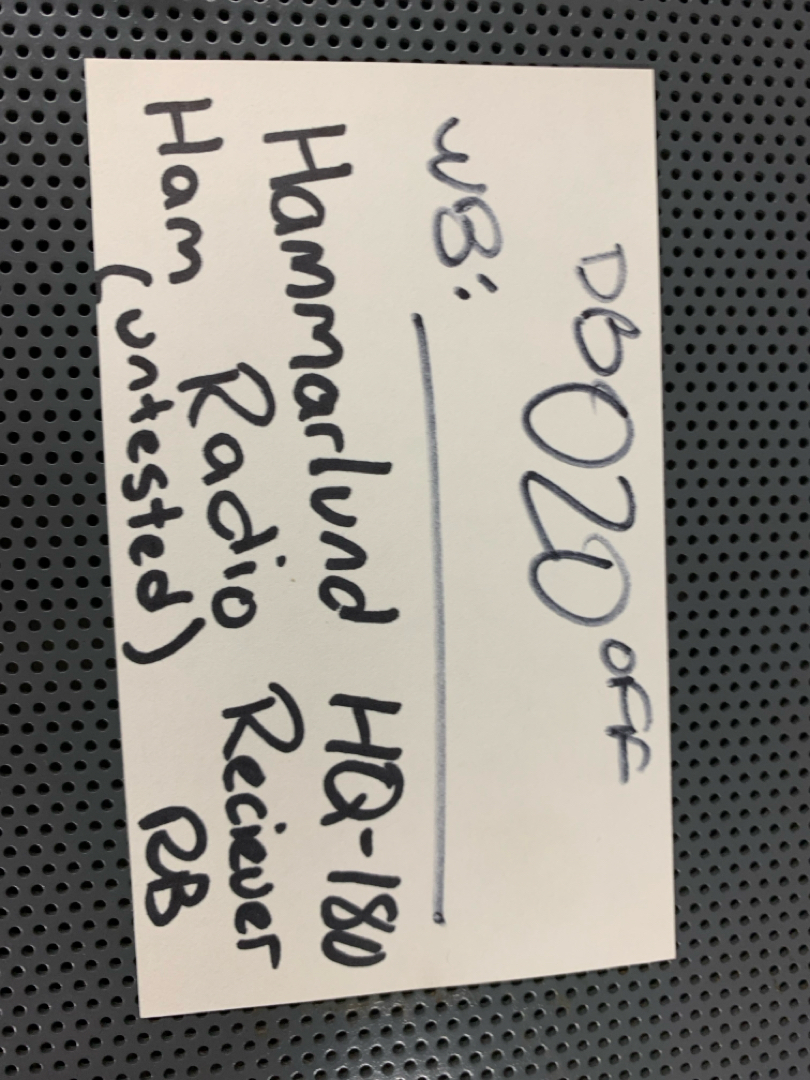 DB 020 off
WB:
Hammarlund HQ-180
Ham Radio Reciever
(untested) RB